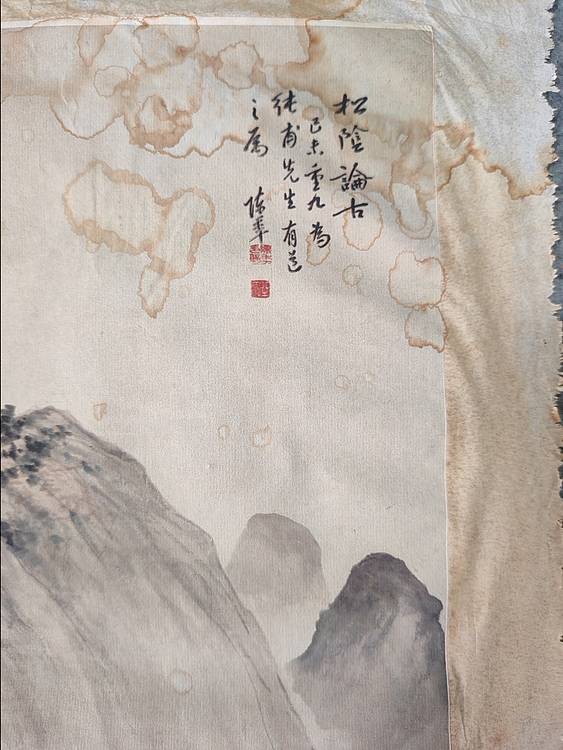 松陰論古
己未重九為
純甫先生有道
之屬
陳華